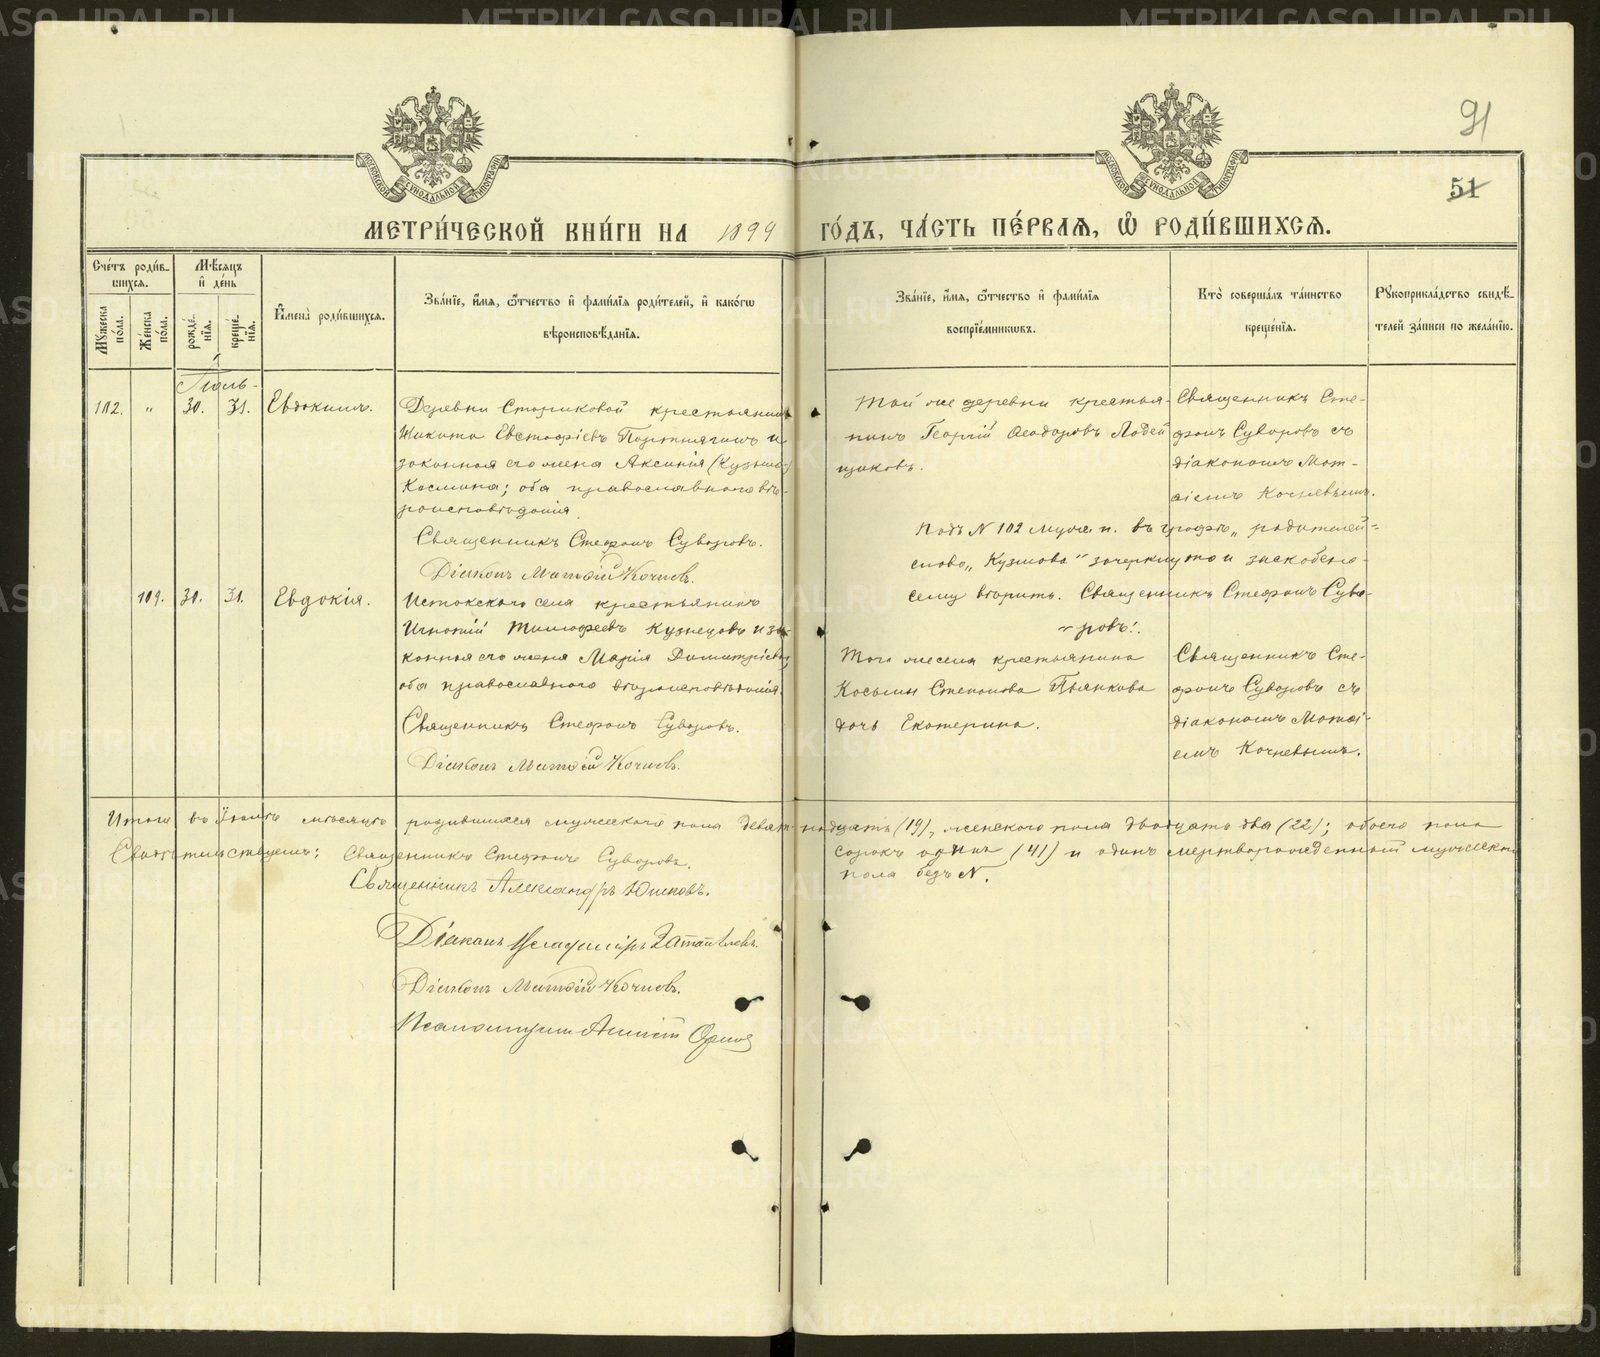 METRIKI.GASO-URAL.RU
91
51
МОСКОВСКОЙ СѴНОДАЛЬНОЙ ТИПОГРАФІИ
МОСКОВСКОЙ СѴНОДАЛЬНОЙ ТИПОГРАФІИ
МЕТРИ́ЧЕСКОЙ КНИ́ГИ НА 1899 ГО́ДЪ, ЧА́СТЬ ПЕ́РВАЯ, Ѡ РОДИ́ВШИХСЯ.
Сче́тъ роди́вшихся.
Мꙋжеска по́ла.
Же́нска по́ла.
Мѣ́сяцъ и́ де́нь
рожде́нїя.
креще́нїя.
И҆мена̀ роди́вшихся.
Зва́нїе, и҆́мя, ѻ҆́тчество и҆ фами́лїя роди́телей, и҆ како́гѡ вѣроисповѣ́данїя.
Зва́нїе, и҆́мя, ѻ҆́тчество и҆ фами́лїя воспрїе́мникѡвъ.
Кто̀ соверша́лъ та́инство креще́нїя.
Рꙋкоприкла́дство свидѣ́телей за́писи по жела́нїю.
Іюль
102. " 30. 31. Евдокимъ.
Деревни Стариковой крестьянинъ
Никита Евстафіевъ Портнягинъ и
законная его жена Аксинія (Кузьмо-)
Космина; оба православнаго вѣ-
роисповѣданія.
Священникъ Стефанъ Суворовъ.
Діаконъ Матѳій Кочневъ.
Той же деревни крестья-
нинъ Георгій Ѳеодоровъ Лодей
щиковъ.
Священникъ Сте-
фанъ Суворовъ съ
діакономъ Мат-
ѳіемъ Кочневымъ.
Подъ N 102 муж. п. въ графѣ „ родителей-
слово „ Кузмова" зачеркнуто и заскобено-
сему вѣрить. Священникъ Стефанъ Суво-
"ровъ!.
109. 30. 31. Евдокія.
Истокскаго села крестьянинъ
Игнатій Тимофеевъ Кузнецовъ и за-
конная его жена Марія Димитріева
оба православнаго вѣроисповѣданія.
Священникъ Стефанъ Суворовъ.
Діаконъ Матѳій Кочневъ.
Того же села крестьянина
Косьмы Степанова Пьянкова
дочь Екатерина.
Священникъ Сте-
фанъ Суворовъ съ
діакономъ Матѳі-
емъ Кочневымъ.
Итого въ Іюлѣ мѣсяцѣ родившихся мужескаго пола девят-надцать (19), женскаго пола двадцать два (22); обоего пола
сорокъ одинъ (41) и одинъ мертворожденный мужеска
пола безъ N.
Свидѣтельствуемъ: Священникъ Стефанъ Суворовъ.
Священникъ Александръ Юшковъ.
Діаконъ Владиміръ
Діаконъ Матѳій Кочневъ.
Псаломщикъ